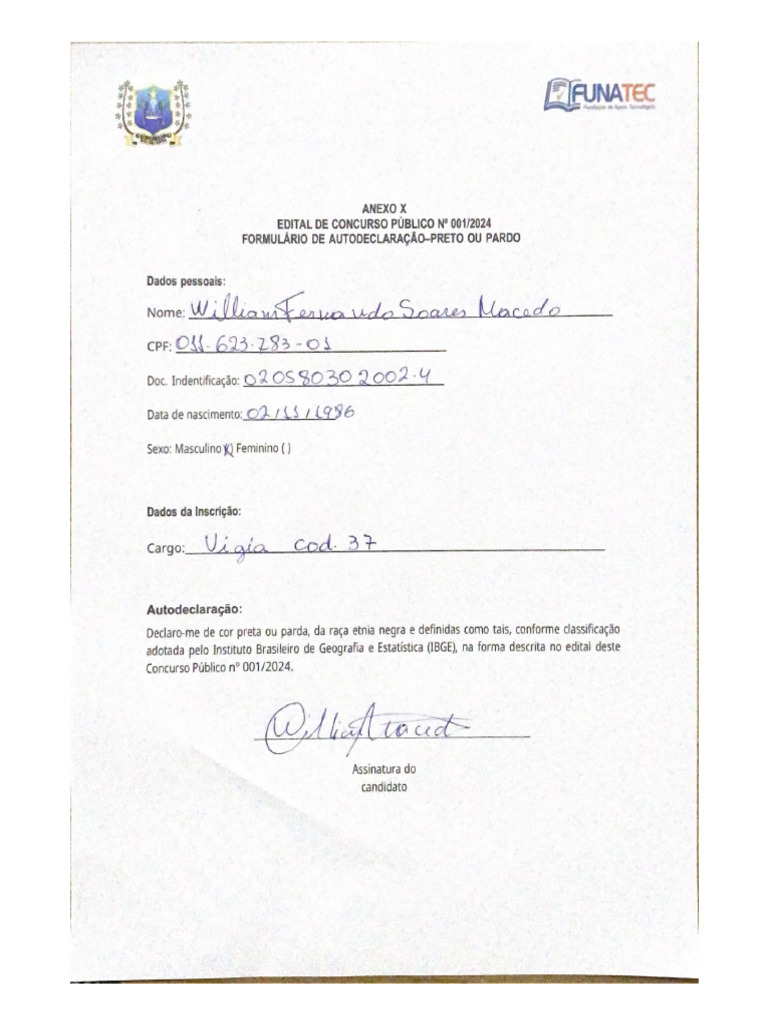 FUNATEC
Fundação de Apoio Tecnológico
ANEXO X
EDITAL DE CONCURSO PÚBLICO Nº 001/2024
FORMULÁRIO DE AUTODECLARAÇÃO–PRETO OU PARDO
Dados pessoais:
Nome: Willian Fernando Soares Macedo
CPF: 011.623.283-01
Doc. Indentificação: 020580302002-4
Data de nascimento: 02/11/1986
Sexo: Masculino (X) Feminino ( )
Dados da Inscrição:
Cargo: Vigia cod. 37
Autodeclaração:
Declaro-me de cor preta ou parda, da raça etnia negra e definidas como tais, conforme classificação
adotada pelo Instituto Brasileiro de Geografia e Estatística (IBGE), na forma descrita no edital deste
Concurso Público nº 001/2024.
Assinatura do
candidato